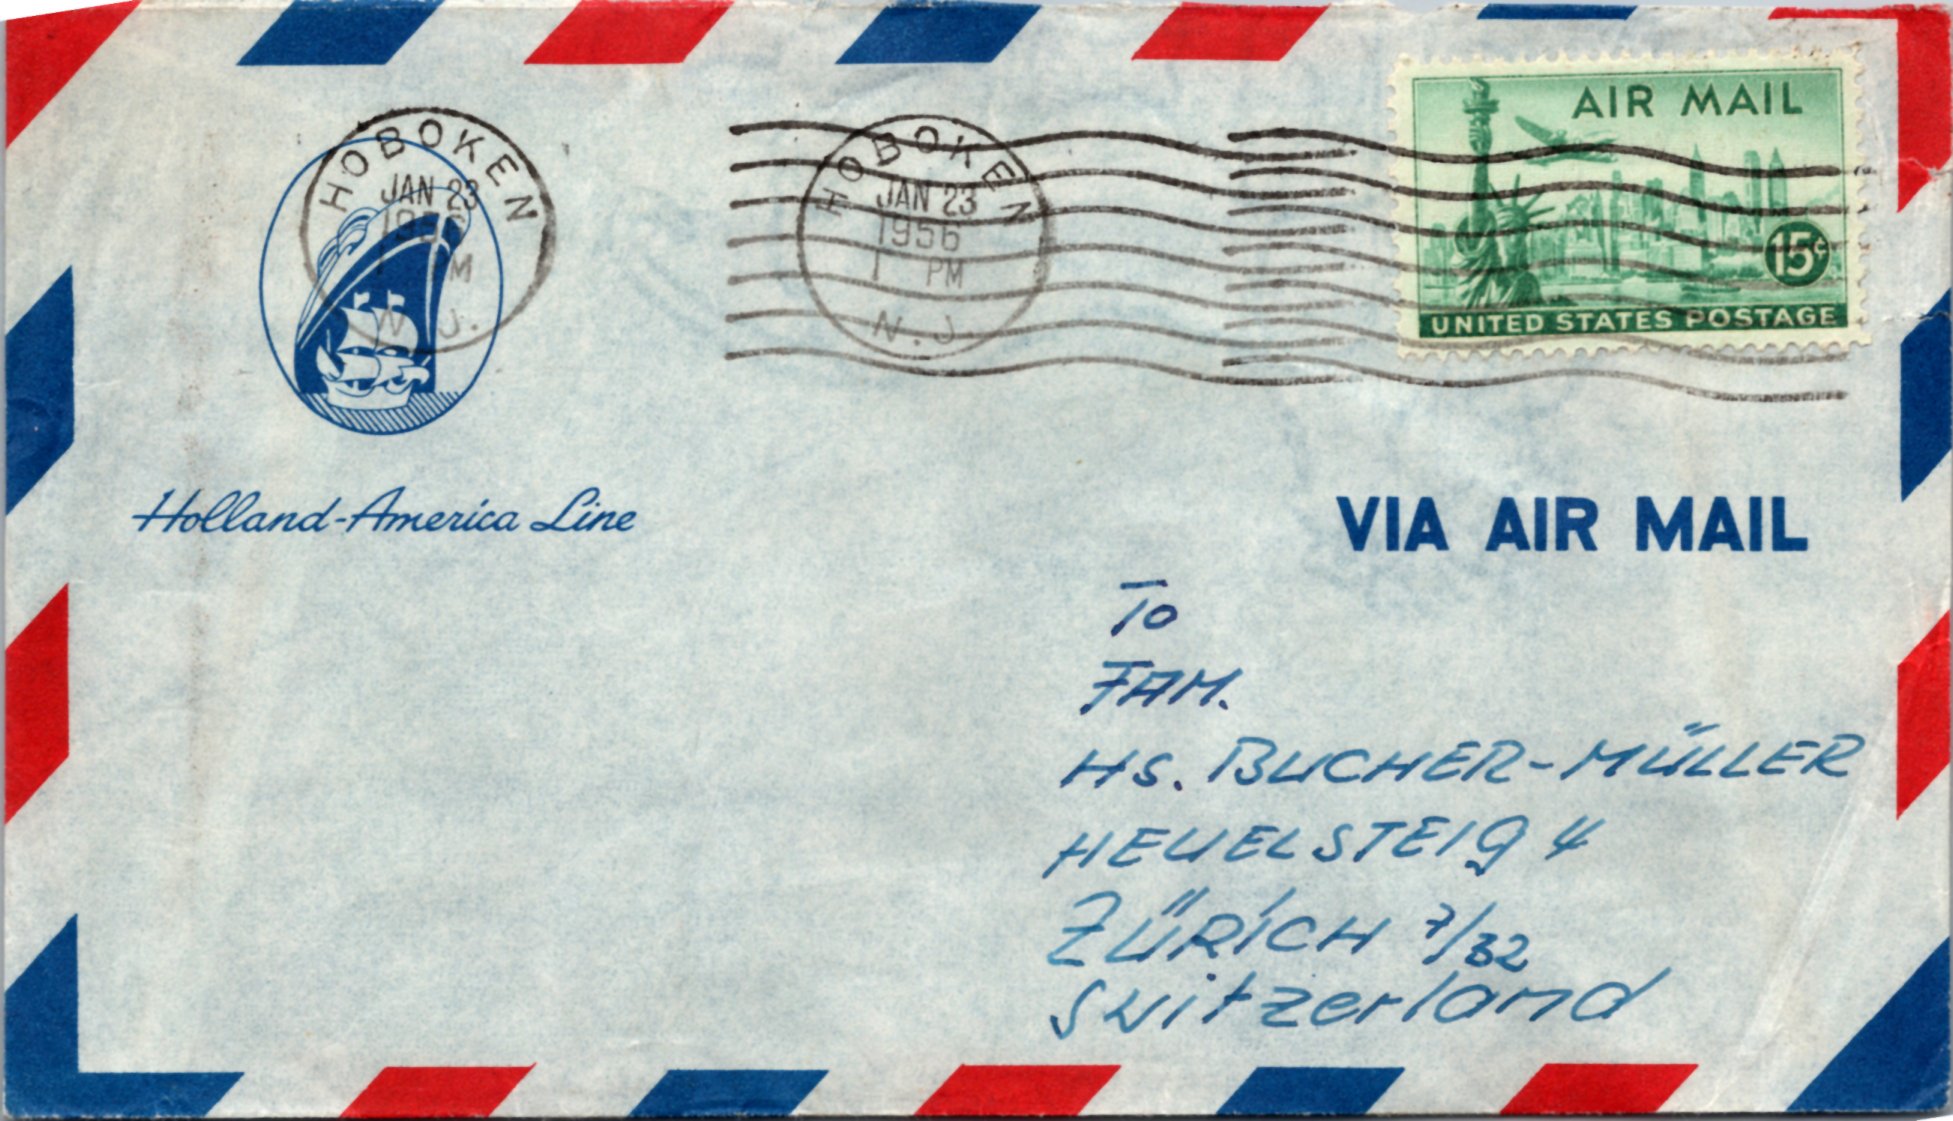 HOBOKEN
JAN 23
1956
PM
N.J.
HOBOKEN
JAN 23
1956
1 PM
N.J.
AIR MAIL
15¢
UNITED STATES POSTAGE
Holland-America Line
VIA AIR MAIL
To
FAM.
HS. BUCHER-MÜLLER
HEUELSTEIG 4
ZÜRICH 7/32
Switzerland